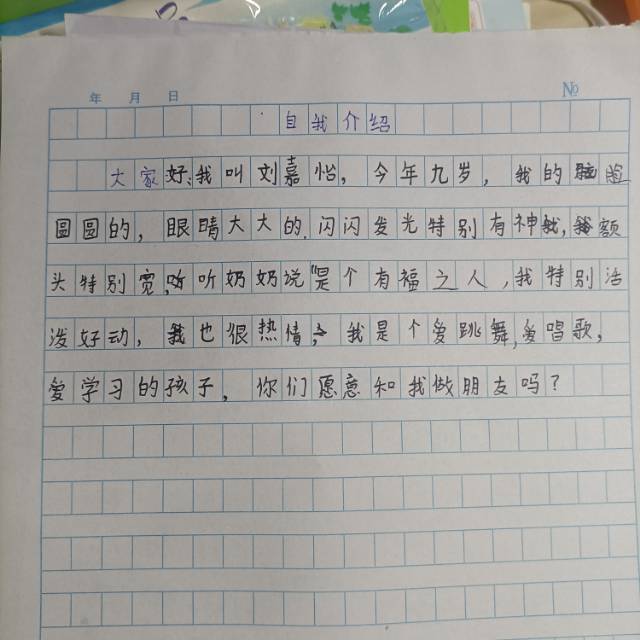 年 月 日 No
自我介绍
大家好,我叫刘嘉怡,今年九岁,我的脸
圆圆的,眼睛大大的,闪闪发光特别有神,我额
头特别宽,听奶奶说"是个有福之人,我特别活
泼好动,我也很热情,我是个爱跳舞,爱唱歌,
爱学习的孩子,你们愿意和我做朋友吗?